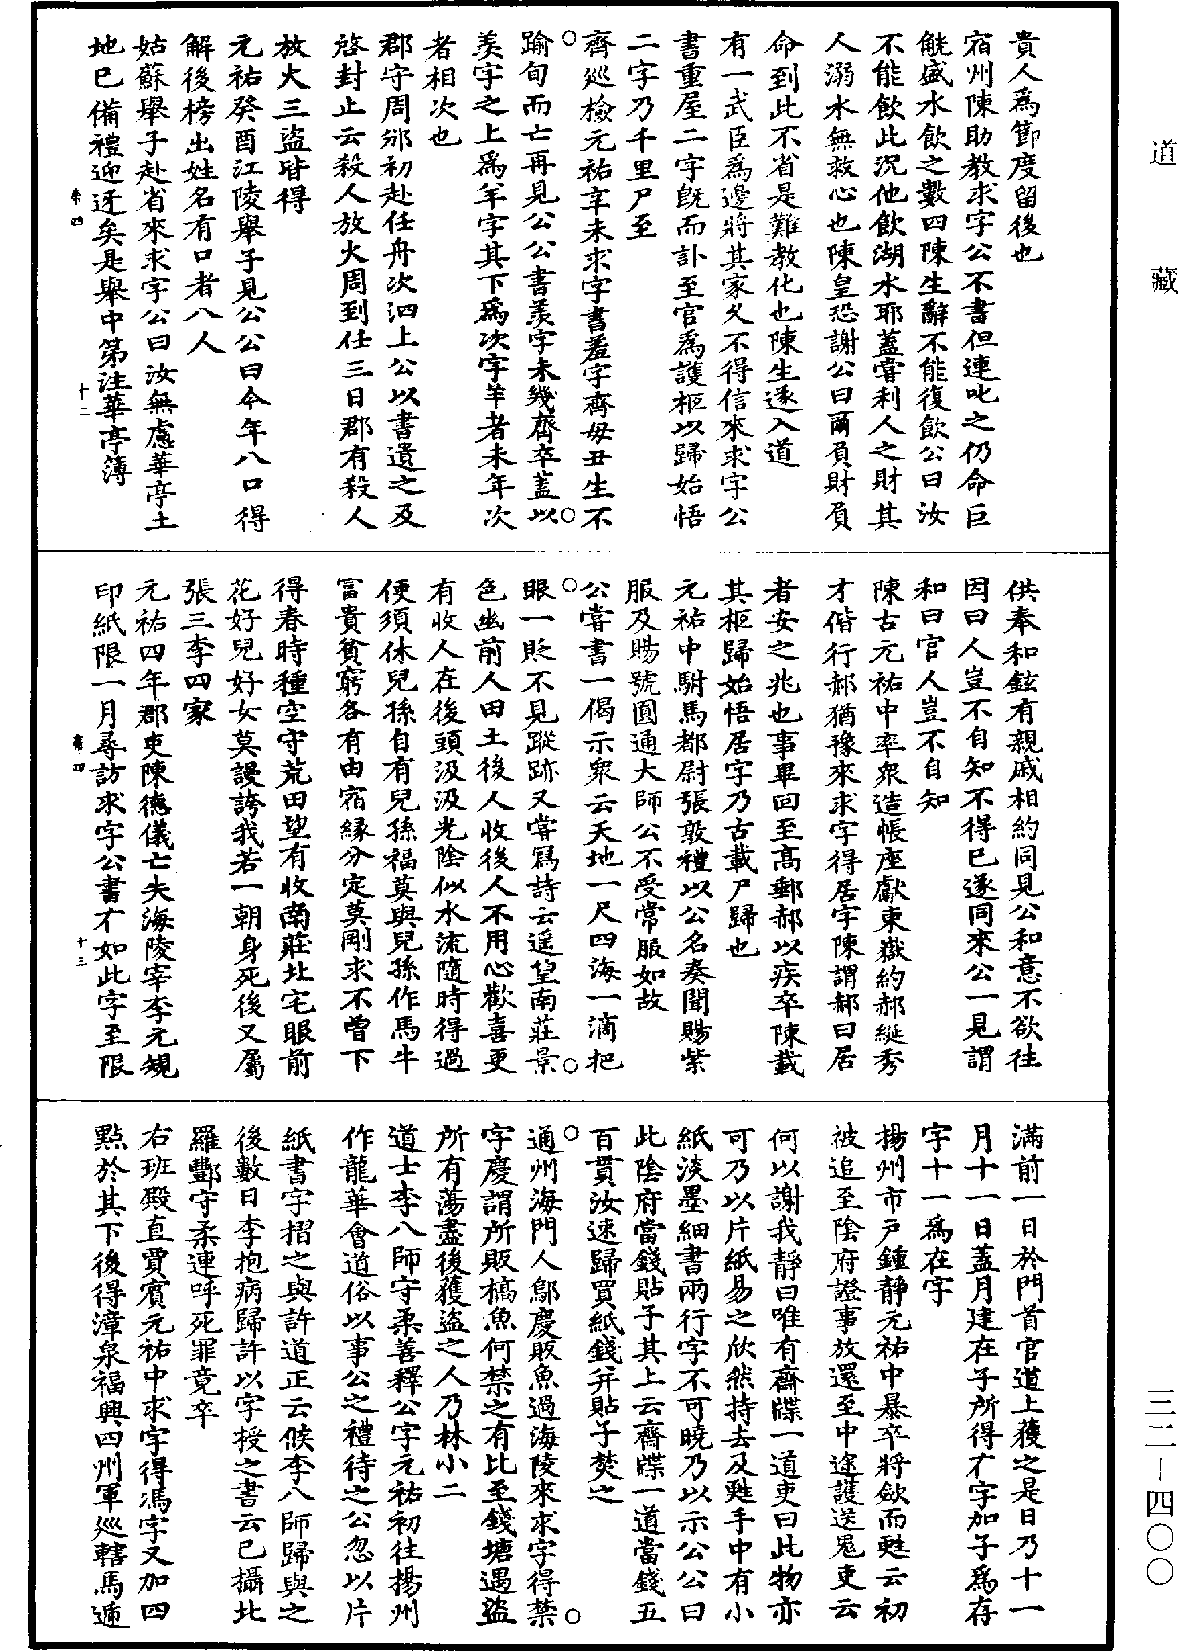 道藏
三二—四〇〇
貴人爲節度留後也
宿州陳助教求字公不書但連叱之仍命巨
觥盛水飲之數四陳生辭不能復飲公曰汝
不能飲此況他飲湖水耶蓋嘗利人之財其
人溺水無救心也陳皇恐謝公曰爾負財負
命到此不省是難教化也陳生遂入道
有一武臣爲邊將其家久不得信來求字公
書重屋二字旣而訃至官爲護柩以歸始悟
二字乃千里尸至
齊巡檢元祐辛未求字書羞字齊毋丑生不
踰旬而亡再見公公書羨字未幾齊卒蓋以
羨字之上爲羊字其下爲次字羊者未年次
者相次也
郡守周邠初赴任舟次泗上公以書遺之及
啓封止云殺人放火周到任三日郡有殺人
放火三盜皆得
元祐癸酉江陵舉子見公公曰今年八口得
解後榜出姓名有口者八人
姑蘇舉子赴省來求字公曰汝無慮華亭土
地已備禮迎迓矣是舉中第注華亭簿
十二
供奉和鉉有親戚相約同見公和意不欲往
因曰人豈不自知不得已遂同來公一見謂
和曰官人豈不自知
陳古元祐中率衆造帳座獻東嶽約郝綖秀
才偕行郝猶豫來求字得居字陳謂郝曰居
者安之兆也事畢回至高郵郝以疾卒陳載
其柩歸始悟居字乃古載尸歸也
元祐中駙馬都尉張敦禮以公名奏聞賜紫
服及賜號圓通大師公不受常服如故
公嘗書一偈示衆云天地一尺四海一滴把
眼一貶不見蹤跡又嘗寫詩云遥望南莊景
色幽前人田土後人收後人不用心歡喜更
有收人在後頭汲汲光陰似水流隨時得過
便須休兒孫自有兒孫福莫與兒孫作馬牛
富貴貧窮各有由宿緣分定莫剛求不曾下
得春時種空守荒田望有收南莊北宅眼前
花好兒好女莫謾誇我若一朝身死後又屬
張三李四家
元祐四年郡吏陳德儀亡失海陵宰李元規
印紙限一月尋訪求字公書才如此字至限
十三
滿前一日於門首官道上獲之是日乃十一
月十一日蓋月建在子所得才字加子爲存
字十一爲在字
揚州市戶鍾靜元祐中暴卒將斂而甦云初
被追至陰府證事放還至中途護送鬼吏云
何以謝我靜曰唯有齋牒一道吏曰此物亦
可乃以片紙易之欣然持去及甦手中有小
紙淡墨細書兩行字不可曉乃以示公公曰
此陰府當錢貼子其上云齋牒一道當錢五
百貫汝速歸買紙錢并貼子焚之
通州海門人鄔慶販魚過海陵來求字得禁
字慶謂所販槁魚何禁之有比至錢塘遇盜
所有蕩盡後獲盜之人乃林小二
道士李八師守柔善釋公字元祐初往揚州
作龍華會道俗以事公之禮待之公忽以片
紙書字摺之與許道正云候李八師歸與之
後數日李抱病歸許以字授之書云已攝北
羅酆守柔連呼死罪竟卒
右班殿直賈賓元祐中求字得馮字又加四
點於其下後得漳泉福興四州軍巡轄馬遞